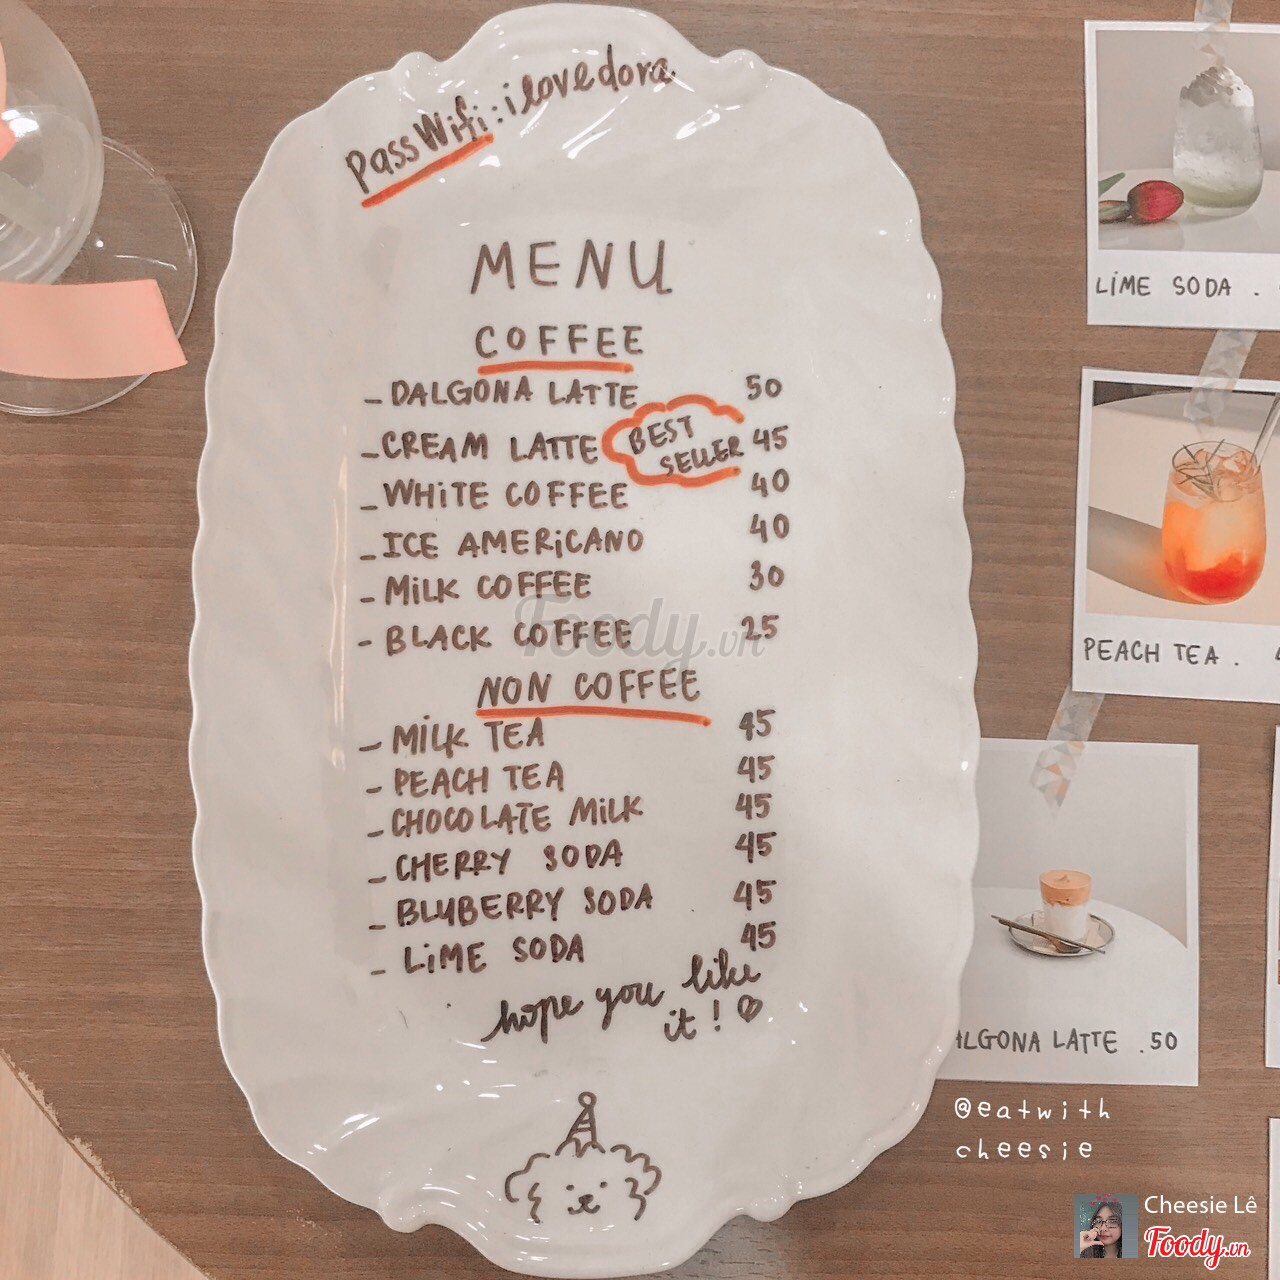 Pass Wifi: ilovedora
MENU
COFFEE
- DALGONA LATTE 50
- CREAM LATTE BEST SELLER 45
- WHITE COFFEE 40
- ICE AMERICANO 40
- MILK COFFEE 30
- BLACK COFFEE 25
NON COFFEE
- MILK TEA 45
- PEACH TEA 45
- CHOCOLATE MILK 45
- CHERRY SODA 45
- BLUBERRY SODA 45
- LIME SODA 45
hope you like
it!
LIME SODA .
PEACH TEA .
ALGONA LATTE .50
@eatwith
cheesie
Foody.vn
Cheesie Lê
Foody.vn